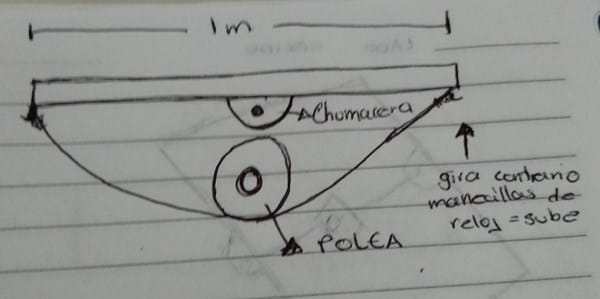 1m
Chumacera
gira contrario
manecillas de
reloj = sube
POLEA